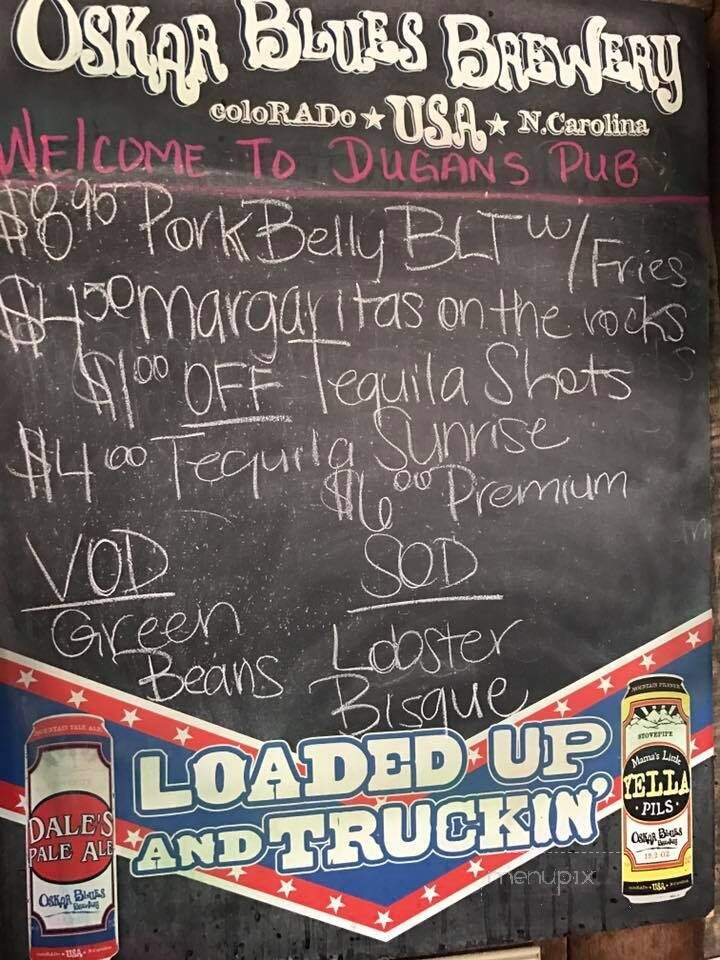 OSKAR BLUES BREWERY
coloRADo ★ USA ★ N.Carolina
WElCOME TO DUGANS PUB
$8.95 Pork Belly BLT w/Fries
$4.50 margaritas on the rocks
$1.00 OFF Tequila Shots
$4.00 Tequila Sunrise
$6.00 Premium
VOD
Green
Beans
SOD
Lobster
Bisque
LOADED UP
AND TRUCKIN'
DALE'S
PALE ALE
OSKAR BLUES
USA
MOUNTAIN PILSNER
STOVEPIPE
Mama's Little
YELLA
PILS
OSKAR BLUES
19.2 OZ
USA
menupix